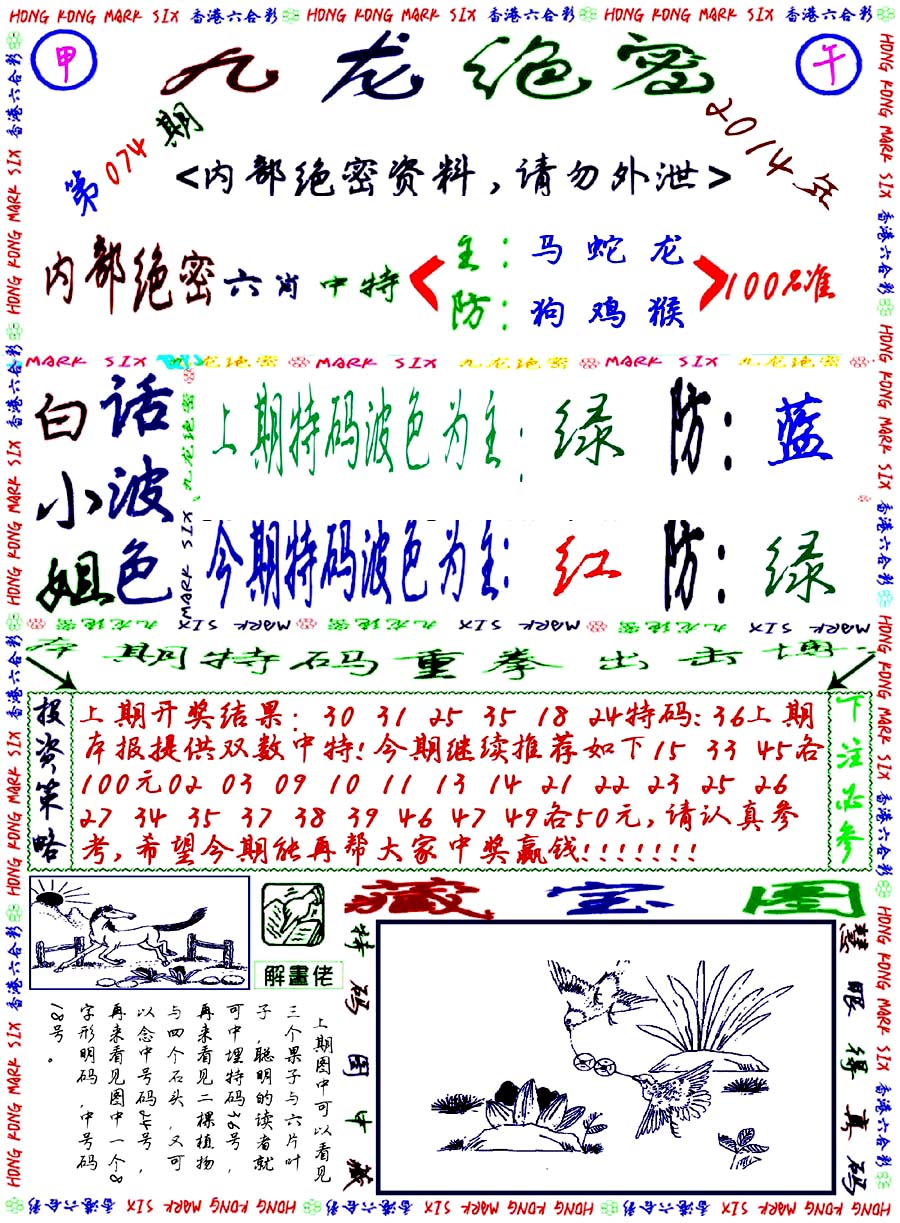 HONG KONG MARK SIX 香港六合彩 HONG KONG MARK SIX 香港六合彩 HONG KONG MARK SIX 香港六合彩
甲
九龙绝密
午
第074期
2014年
<内部绝密资料,请勿外泄>
内部绝密六肖中特
主:马蛇龙
防:狗鸡猴
100%准
MARK SIX 九龙绝密 MARK SIX 九龙绝密 MARK SIX 九龙绝密
白话小波姐色
上期特码波色为主:绿 防:蓝
今期特码波色为主:红 防:绿
MARK SIX 九龙绝密 MARK SIX 九龙绝密 MARK SIX 九龙绝密
本期特码重拳出击博
投资策略
上期开奖结果:30 31 25 35 18 24特码:36上期
本报提供双数中特!今期继续推荐如下15 33 45各
100元02 03 09 10 11 13 14 21 22 23 25 26
27 34 35 37 38 39 46 47 49各50元,请认真参
考,希望今期能再帮大家中奖赢钱!!!!!!!
下注必参
藏宝图
解畫佬
特码图中藏
慧眼得真码
上期图中可以看见
三个果子与六片叶
子,聪明的读者就
可中埋特码36号,
再来看见二棵植物
与四个石头,又可
以念中号码24号,
再来看见图中一个8
字形明码,中号码
18号。
HONG KONG MARK SIX 香港六合彩 HONG KONG MARK SIX 香港六合彩 HONG KONG MARK SIX 香港六合彩